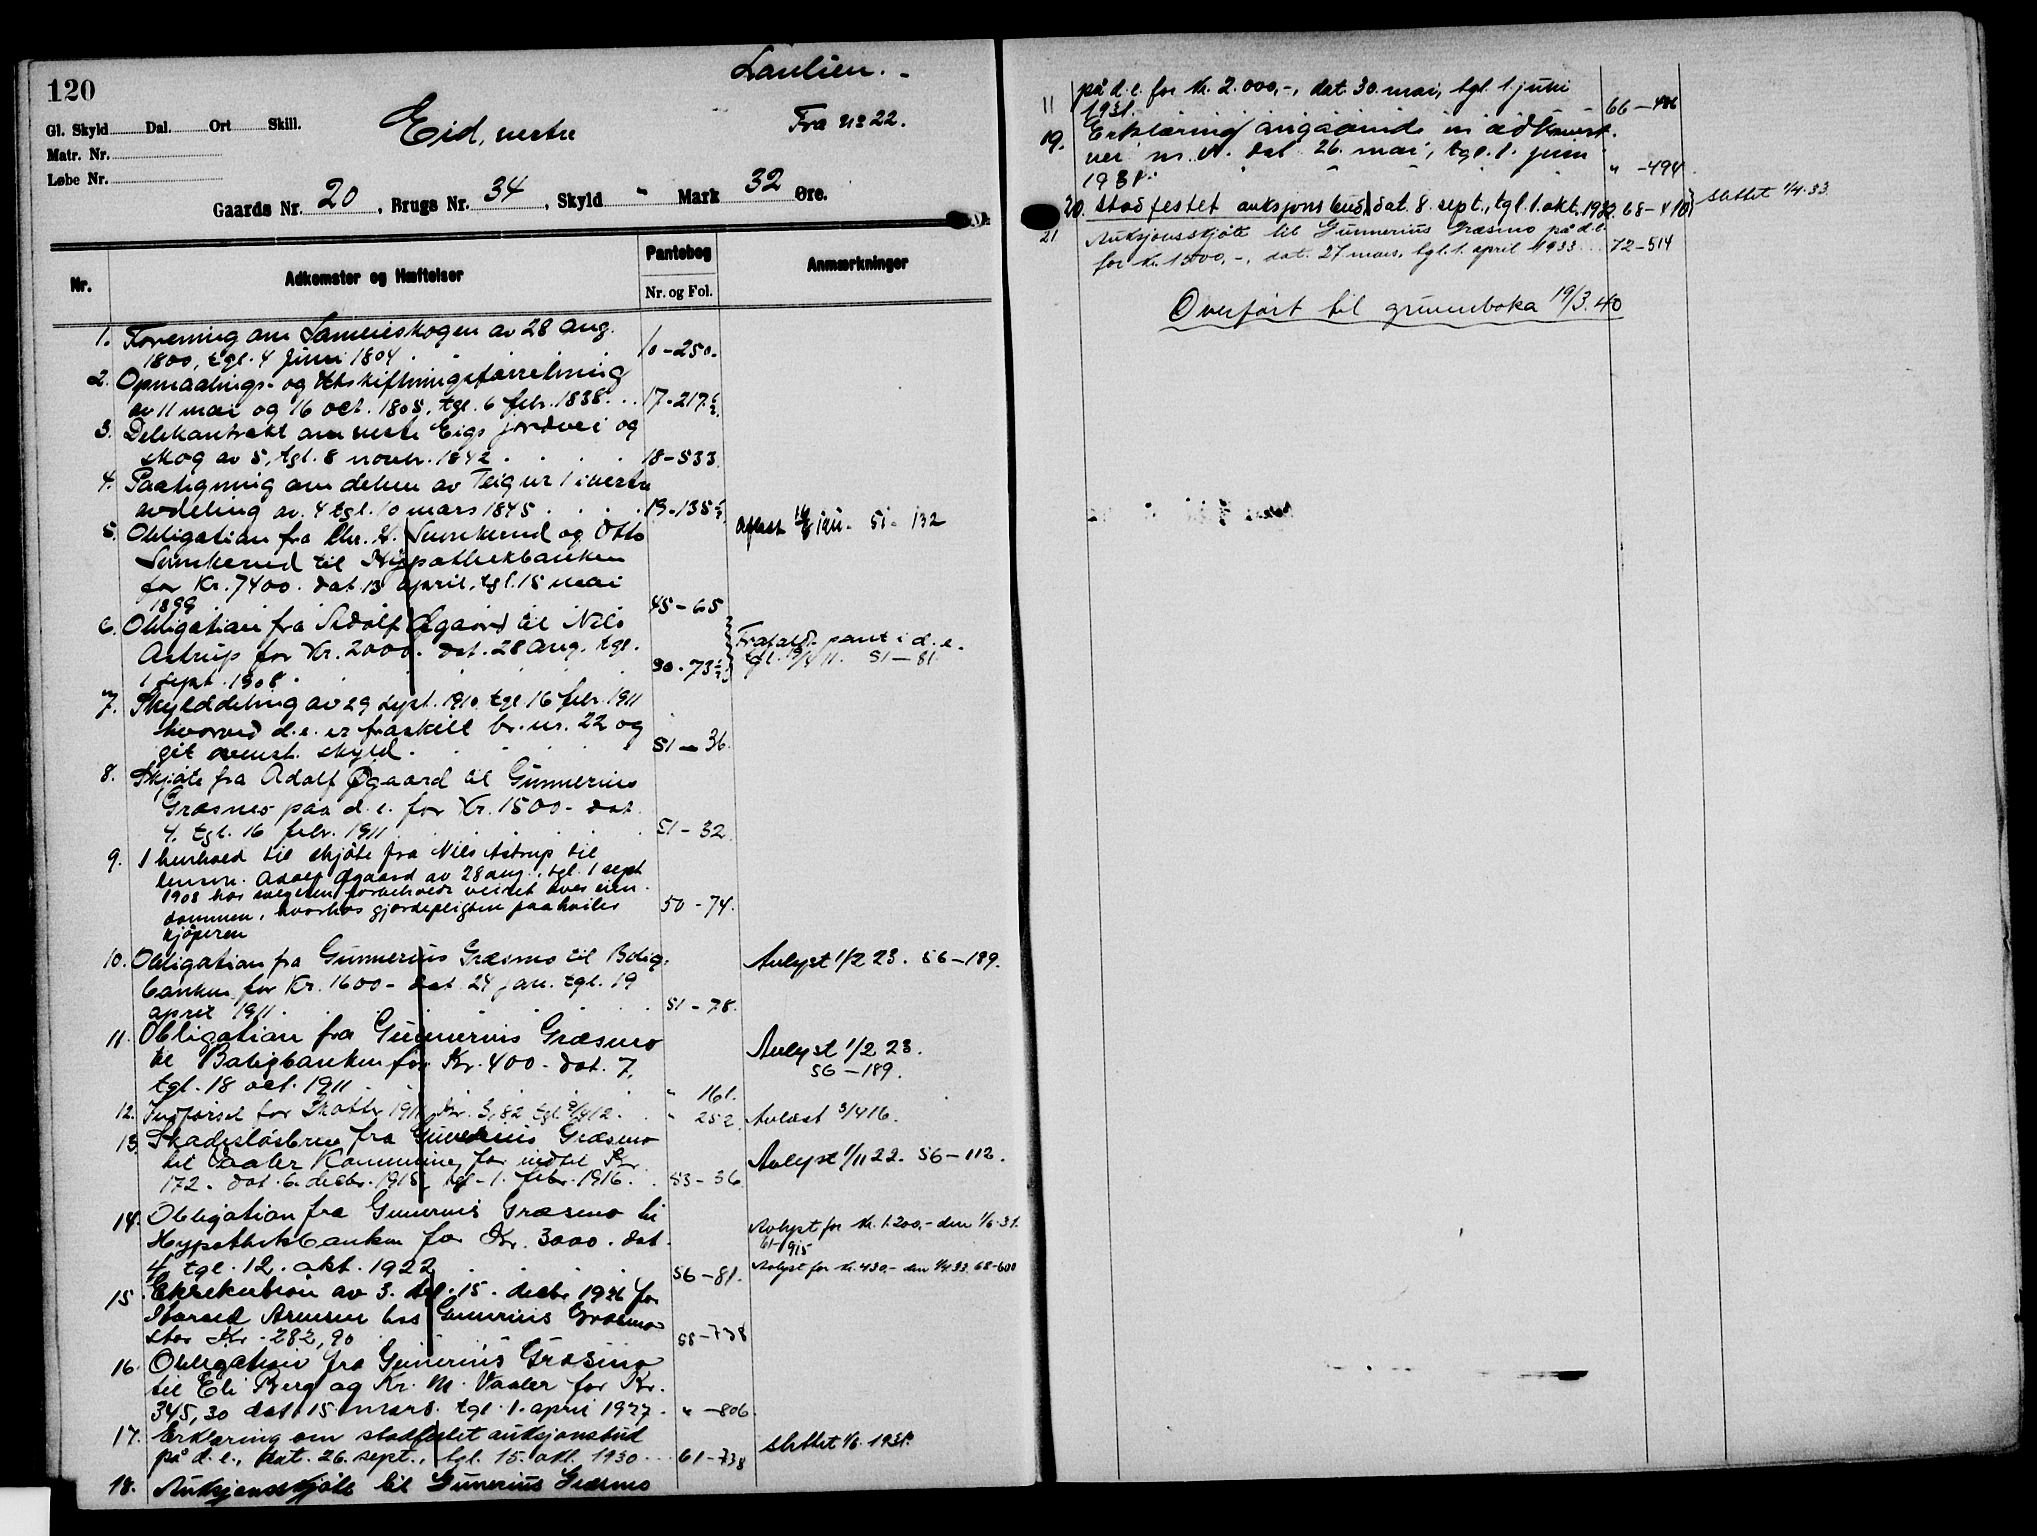 120
Gl. Skyld Dal. Ort Skill.
Matr. Nr.
Løbe Nr.
Eid, vestre
Fra nr 22.
Gaards Nr. 20, Brugs Nr. 34, Skyld " Mark 32 Øre.
Nr.
Adkomster og Hæftelser
Pantebog
Nr. og Fol.
Anmærkninger
1. Forening om Sameieskogen av 28 aug.
1800, tgl. 4 juni 1804 10-250.
2. Opmaalings- og Utskiftningsforretning
av 11 mai og 16 oct. 1805, tgl. 6 febr. 1838. 17-217½
3. Delekontrakt om vestre Eids jordvei og
skog av 5, tgl. 8 novbr. 1842 18-533.
4. Paategning om delen av Teig nr 1 i vestre
avdeling av 4 tgl. 10 mars 1845 19-135½
5. Obligation fra Chr. H. Sunkerud og Otto
Sunkerud til Hypothekbanken
for Kr. 7400. dat. 13 april, tgl. 15 mai
1899 45-65
Avlæst 51-132
6. Obligation fra Adolf Øgaard til Nils
Astrup for Kr. 2000. dat. 28 aug. tgl.
1 sept. 1908. 50-73½
Frafaldt pant i d. e.
tgl. 19/4 11. 51-81.
7. Skylddeling av 29 sept. 1910 tgl. 16 febr. 1911
hvorved d. e. er fraskilt br. nr. 22 og
git ovenst. skyld. 51-36.
8. Skjøte fra Adolf Øgaard til Gunnerius
Græsmo paa d. e. for Kr. 1500- dat.
4. tgl. 16 febr. 1911 51-32.
9. I henhold til skjøte fra Nils Astrup til
Adolf Øgaard av 28 aug., tgl. 1 sept
1908 har sælgeren forbeholdt veiret over eien-
dommen, hvorhos gjærdepligten paahviler
kjøperen 50-74.
10. Obligation fra Gunnerius Græsmo til Bolig-
banken for Kr. 1600- dat. 24 jan. tgl. 19
april 1911. 51-78.
Avlyst 1/2 23. 56-189.
11. Obligation fra Gunnerius Græsmo
til Boligbanken for Kr. 400- dat. 7,
tgl. 18 oct. 1911 " 161.
Avlyst 1/2 23.
56-189.
12. Indførsel for Skatter 1911 Kr. 3,82 tgl. 2/4 12. " 252.
Avlæst 3/4 16.
13. Skadesløsbrev fra Gunnerius Græsmo
til Vaaler Kommune, for indtil Kr.
172.- dat. 6. decbr. 1915, tgl. 1. febr. 1916. 53-36
Avlyst 1/11 22. 56-112.
14. Obligation fra Gunerius Græsmo til
Hypothekbanken for Kr. 3000. dat.
4, tgl. 12. okt. 1922 56-81.
Avlyst for kr. 1.200,- den 1/6.31.
61-915
Avlyst for kr. 430,- den 1/4.33. 68-600
15. Eksekution av 3. tgl. 15. decbr. 1926 for
Arnesen hos Gunerius Græsmo
stor Kr. 282,90 58-738
16. Obligation fra Gunerius Græsmo
til Eli Berg og Kr. M. Vaaler for Kr.
345,30 dat. 15 mars. tgl. 1. april 1927. " -806.
17. Erklæring om stadfestet auksjonsbud
på d. e., dat. 26. sept., tgl. 15. okt. 1930 61-738
slettet 1/6. 1931.
18. Auksjonsskjøte til Gunerius Græsmo
på d. e. for kr. 2.000,-, dat. 30. mai, tgl. 1. juni
1931. 66-486
19. Erklæring angående en
vei m. v. dat. 26. mai, tgl. 1. juni
1931. " -494.
20. Stadfestet auksjonsbud dat. 8. sept., tgl. 1. okt. 1932. 68-410
slettet 1/4.33.
21 Auksjonsskjøte til Gunnerius Græsmo på d. e.
for kr. 1500,-, dat. 27 mars, tgl. 1. april 1933. 72-514
Overført til grunnboka 19/3.40